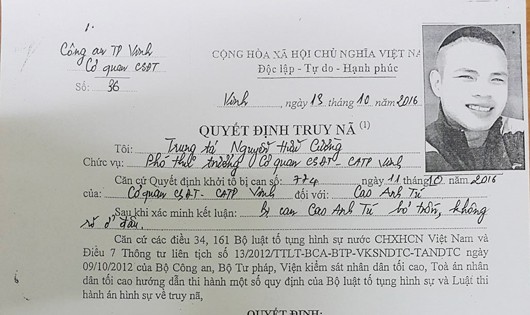 1.
Công an TP Vinh
Cơ quan CSĐT
Số: 36
CỘNG HÒA XÃ HỘI CHỦ NGHĨA VIỆT NA
Độc lập - Tự do - Hạnh phúc
Vinh, ngày 13 tháng 10 năm 2016
QUYẾT ĐỊNH TRUY NÃ (1)
Tôi: Trung tá Nguyễn Hữu Cường
Chức vụ: Phó thủ trưởng Cơ quan CSĐT - CATP Vinh
Căn cứ Quyết định khởi tố bị can số: 774 ngày 11 tháng 10 năm 2016
của: Cơ quan CSĐT - CATP Vinh đối với: Cao Anh Tú
Sau khi xác minh kết luận: bị can Cao Anh Tú bỏ trốn, không
rõ ở đâu.
Căn cứ các điều 34, 161 Bộ luật tố tụng hình sự nước CHXHCN Việt Nam và
Điều 7 Thông tư liên tịch số 13/2012/TTLT-BCA-BTP-VKSNDTC-TANDTC ngày
09/10/2012 của Bộ Công an, Bộ Tư pháp, Viện kiểm sát nhân dân tối cao, Toà án nhân
dân tối cao hướng dẫn thi hành một số quy định của Bộ luật tố tụng hình sự và Luật thi
hành án hình sự về truy nã,
QUYẾT ĐỊNH: